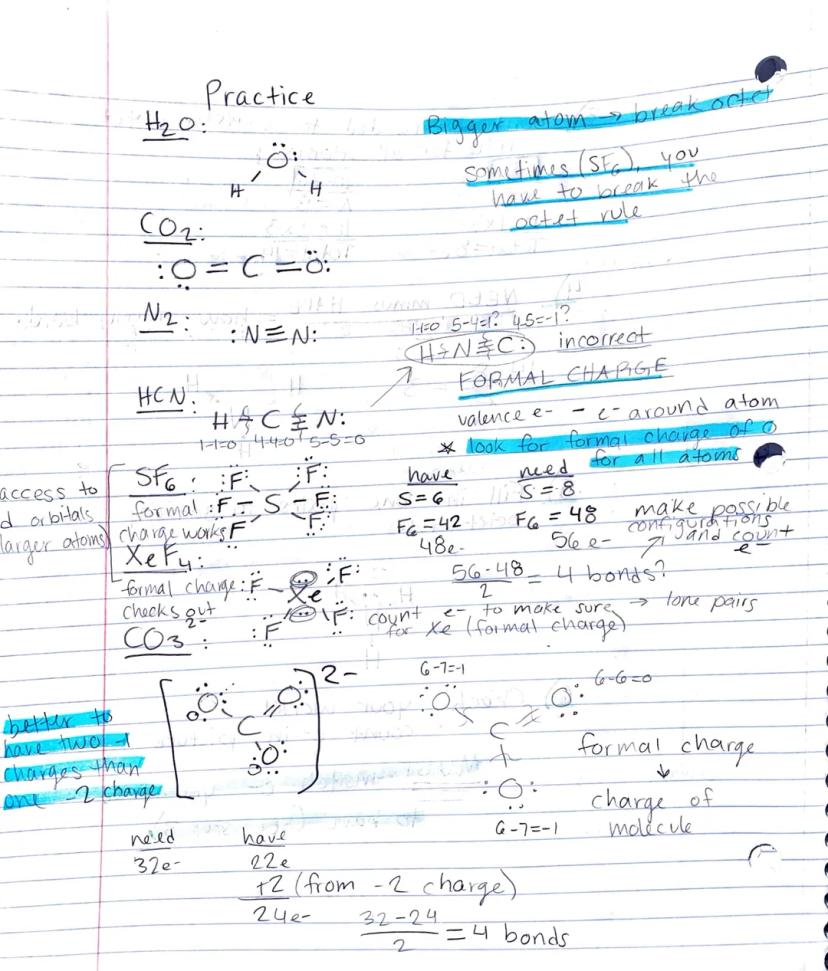 Practice
H2O:
Bigger atom → break octet
sometimes (SF6), you
have to break the
octet rule
H Ö: H
CO2:
:O = C = Ö:
N2:
:N≡N:
1-1=0 5-4=1? 4-5=-1?
H-N≡C: incorrect
FORMAL CHARGE
HCN:
H-C≡N:
1-1=0 4-4=0 5-5=0
valence e- - e- around atom
* look for formal charge of 0
for all atoms
access to
d orbitals
(larger atoms)
SF6:
formal
charge works
:F: :F:
:F - S - F:
F F:
have need
S=6 S=8
F6=42 F6=48
48e- 56e-
make possible
configurations
and count
e-
56-48 / 2 = 4 bonds?
XeF4:
formal charge
checks out
:F :F:
Xe
:F :F:
count e- to make sure → lone pairs
for Xe (formal charge)
CO3 2-:
better to
have two -1
charges than
one -2 charge
[:O: O: C :O:] 2-
6-7=-1 6-6=0
:O: O:
C
:O:
6-7=-1
formal charge
↓
charge of
molecule
need have
32e- 22e
+2 (from -2 charge)
24e-
32-24 / 2 = 4 bonds